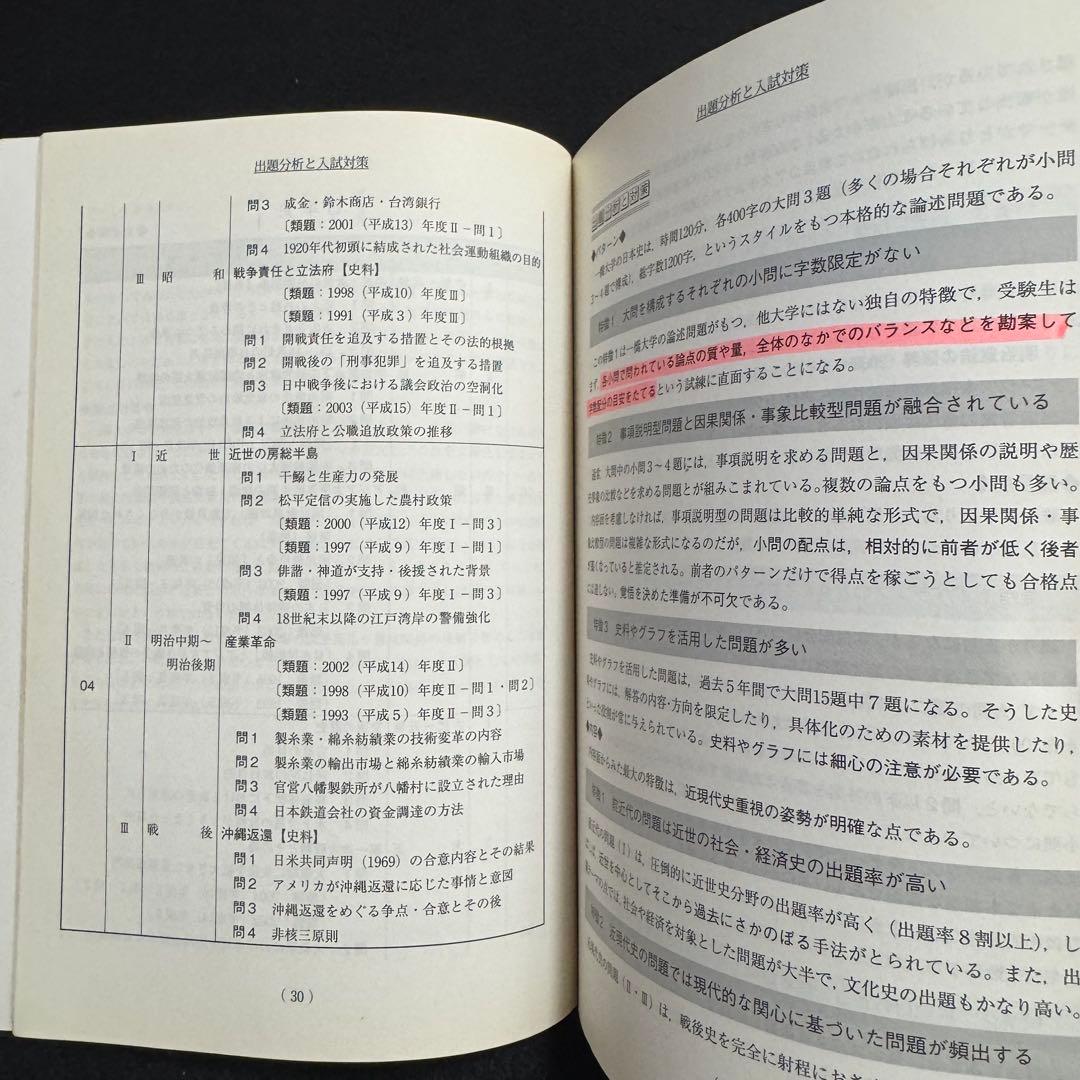 出題分析と入試対策
問3 成金・鈴木商店・台湾銀行
〔類題:2001(平成13)年度Ⅱ-問1〕
問4 1920年代初頭に結成された社会運動組織の目的
Ⅲ 昭和 戦争責任と立法府【史料】
〔類題:1998(平成10)年度Ⅲ〕
〔類題:1991(平成3)年度Ⅲ〕
問1 開戦責任を追及する措置とその法的根拠
問2 開戦後の「刑事犯罪」を追及する措置
問3 日中戦争後における議会政治の空洞化
〔類題:2003(平成15)年度Ⅱ-問1〕
問4 立法府と公職追放政策の推移
04
Ⅰ 近世 近世の房総半島
問1 干鰯と生産力の発展
問2 松平定信の実施した農村政策
〔類題:2000(平成12)年度Ⅰ-問3〕
〔類題:1997(平成9)年度Ⅰ-問1〕
問3 俳諧・神道が支持・後援された背景
〔類題:1997(平成9)年度Ⅰ-問3〕
問4 18世紀末以降の江戸湾岸の警備強化
Ⅱ 明治中期~ 産業革命
明治後期
〔類題:2002(平成14)年度Ⅱ〕
〔類題:1998(平成10)年度Ⅱ-問1・問2〕
〔類題:1993(平成5)年度Ⅱ-問3〕
問1 製糸業・綿糸紡績業の技術変革の内容
問2 製糸業の輸出市場と綿糸紡績業の輸入市場
問3 官営八幡製鉄所が八幡村に設立された理由
問4 日本鉄道会社の資金調達の方法
Ⅲ 戦後 沖縄返還【史料】
問1 日米共同声明(1969)の合意内容とその結果
問2 アメリカが沖縄返還に応じた事情と意図
問3 沖縄返還をめぐる争点・合意とその後
問4 非核三原則
(30)
出題分析と入試対策
出題分析と対策
◆パターン◆
一橋大学の日本史は,時間120分,各400字の大問3題(多くの場合それぞれが小問
3~4題で構成),総字数1200字,というスタイルをもつ本格的な論述問題である。
特徴1 大問を構成するそれぞれの小問に字数限定がない
この特徴1は一橋大学の論述問題がもつ,他大学にはない独自の特徴で,受験生は
まず,各小問で問われている論点の質や量,全体のなかでのバランスなどを勘案して
字数配分の目安をたてるという試練に直面することになる。
特徴2 事項説明型問題と因果関係・事象比較型問題が融合されている
通常,大問中の小問3~4題には,事項説明を求める問題と,因果関係の説明や歴
史事象の比較などを求める問題とが組みこまれている。複数の論点をもつ小問も多い。
内容面を考慮しなければ,事項説明型の問題は比較的単純な形式で,因果関係・事
象比較型の問題は複雑な形式になるのだが,小問の配点は,相対的に前者が低く後者
が高くなっていると推定される。前者のパターンだけで得点を稼ごうとしても合格点
には達しない。覚悟を決めた準備が不可欠である。
特徴3 史料やグラフを活用した問題が多い
史料やグラフを活用した問題は,過去5年間で大問15題中7題になる。そうした史
料やグラフには,解答の内容・方向を限定したり,具体化のための素材を提供したり,
といった役割が常に与えられている。史料やグラフには細心の注意が必要である。
◆内容◆
内容面からみた最大の特徴は,近現代史重視の姿勢が明確な点である。
特徴1 前近代の問題は近世の社会・経済史の出題率が高い
前近代の問題(Ⅰ)は,圧倒的に近世史分野の出題率が高く(出題率8割以上),し
近世を中心としてそこから過去にさかのぼる手法がとられている。また,出
社会や経済を対象とした問題が大半で,文化史の出題もかなり高い。
特徴2 近現代史の問題では現代的な関心に基づいた問題が頻出する
近現代の問題(Ⅱ・Ⅲ)は,戦後史を完全に射程におさ